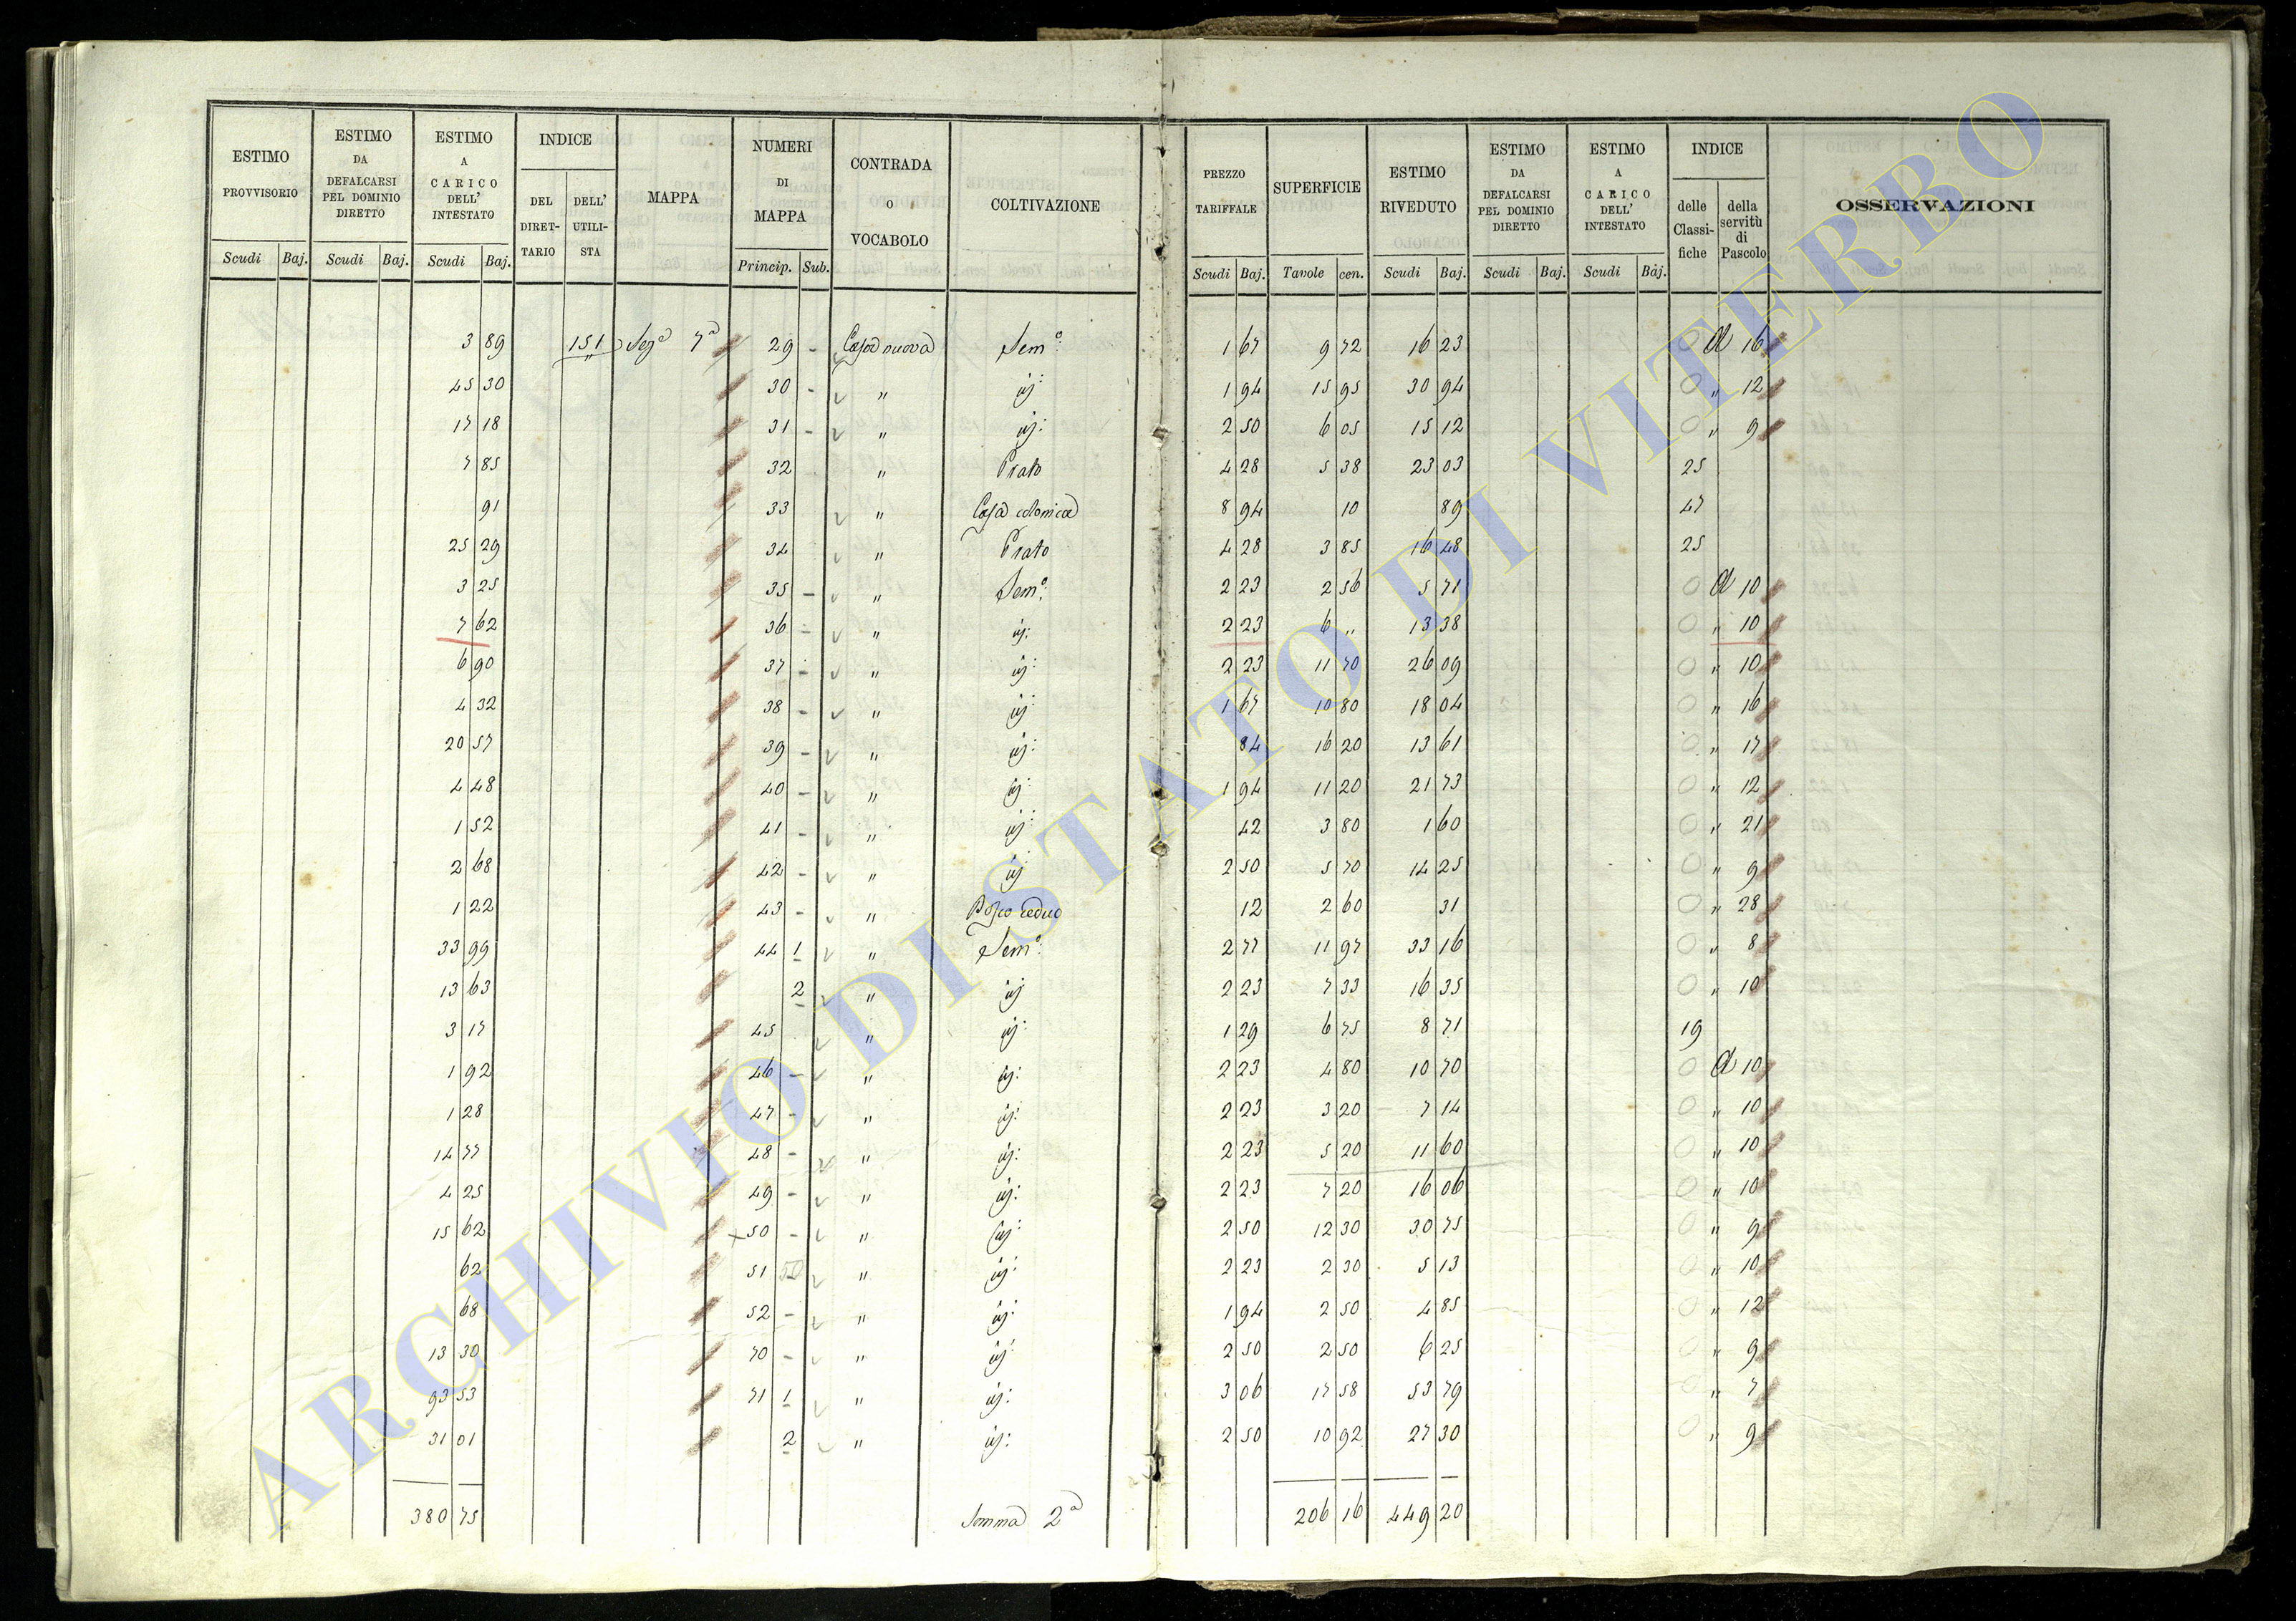 ESTIMO PROVVISORIO | ESTIMO DA DEFALCARSI PEL DOMINIO DIRETTO | ESTIMO A CARICO DELL' INTESTATO | INDICE DEL DIRET-TARIO | DELL' UTILI-STA | MAPPA | NUMERI DI MAPPA | CONTRADA O VOCABOLO | COLTIVAZIONE | PREZZO TARIFFALE | SUPERFICIE | ESTIMO RIVEDUTO | ESTIMO DA DEFALCARSI PEL DOMINIO DIRETTO | ESTIMO A CARICO DELL' INTESTATO | INDICE delle Classi-fiche | della servitù di Pascolo | OSSERVAZIONI
Scudi Baj. | Scudi Baj. | Scudi Baj. | Princip. Sub. | Scudi Baj. | Tavole cen. | Scudi Baj. | Scudi Baj. | Scudi Baj.
3 89 151 Sez.a 7a 29 - Casa nuova Sem.o 1 67 9 72 16 23 0 a 16
45 30 30 - " id: 1 94 15 95 30 94 0 " 12
17 18 31 - " id: 2 50 6 05 15 12 0 " 9
7 85 32 " Prato 4 28 5 38 23 03 25
91 33 " Casa colonica 8 94 10 89 47
25 29 34 " Prato 4 28 3 85 16 48 25
3 25 35 - " Sem.o 2 23 2 56 5 71 0 a 10
7 62 36 - " id: 2 23 6 " 13 38 0 " 10
6 90 37 - " id: 2 23 11 70 26 09 0 " 10
4 32 38 - " id: 1 67 10 80 18 04 0 " 16
20 57 39 - " id: 84 16 20 13 61 0 " 17
4 48 40 - " id: 1 94 11 20 21 73 0 " 12
1 52 41 - " id: 42 3 80 1 60 0 " 21
2 68 42 - " id 2 50 5 70 14 25 0 " 9
1 22 43 - " Bosco ceduo 12 2 60 31 0 " 28
33 99 44 1 " Sem.o 2 77 11 97 33 16 0 " 8
13 63 2 " id 2 23 7 33 16 35 0 " 10
3 17 45 " id: 1 29 6 75 8 71 19
1 92 46 - " id: 2 23 4 80 10 70 0 a 10
1 28 47 - " id: 2 23 3 20 7 14 0 " 10
14 77 48 - " id: 2 23 5 20 11 60 0 " 10
4 25 49 - " id: 2 23 7 20 16 06 0 " 10
15 62 50 - " id: 2 50 12 30 30 75 0 " 9
62 51 50 " id: 2 23 2 30 5 13 0 " 10
68 52 - " id: 1 94 2 50 4 85 0 " 12
13 30 70 - " id: 2 50 2 50 6 25 0 " 9
93 53 71 1 " id: 3 06 17 58 53 79 0 " 7
31 01 2 " id: 2 50 10 92 27 30 0 " 9
380 75 Somma 2a 206 16 449 20
ARCHIVIO DI STATO DI VITERBO